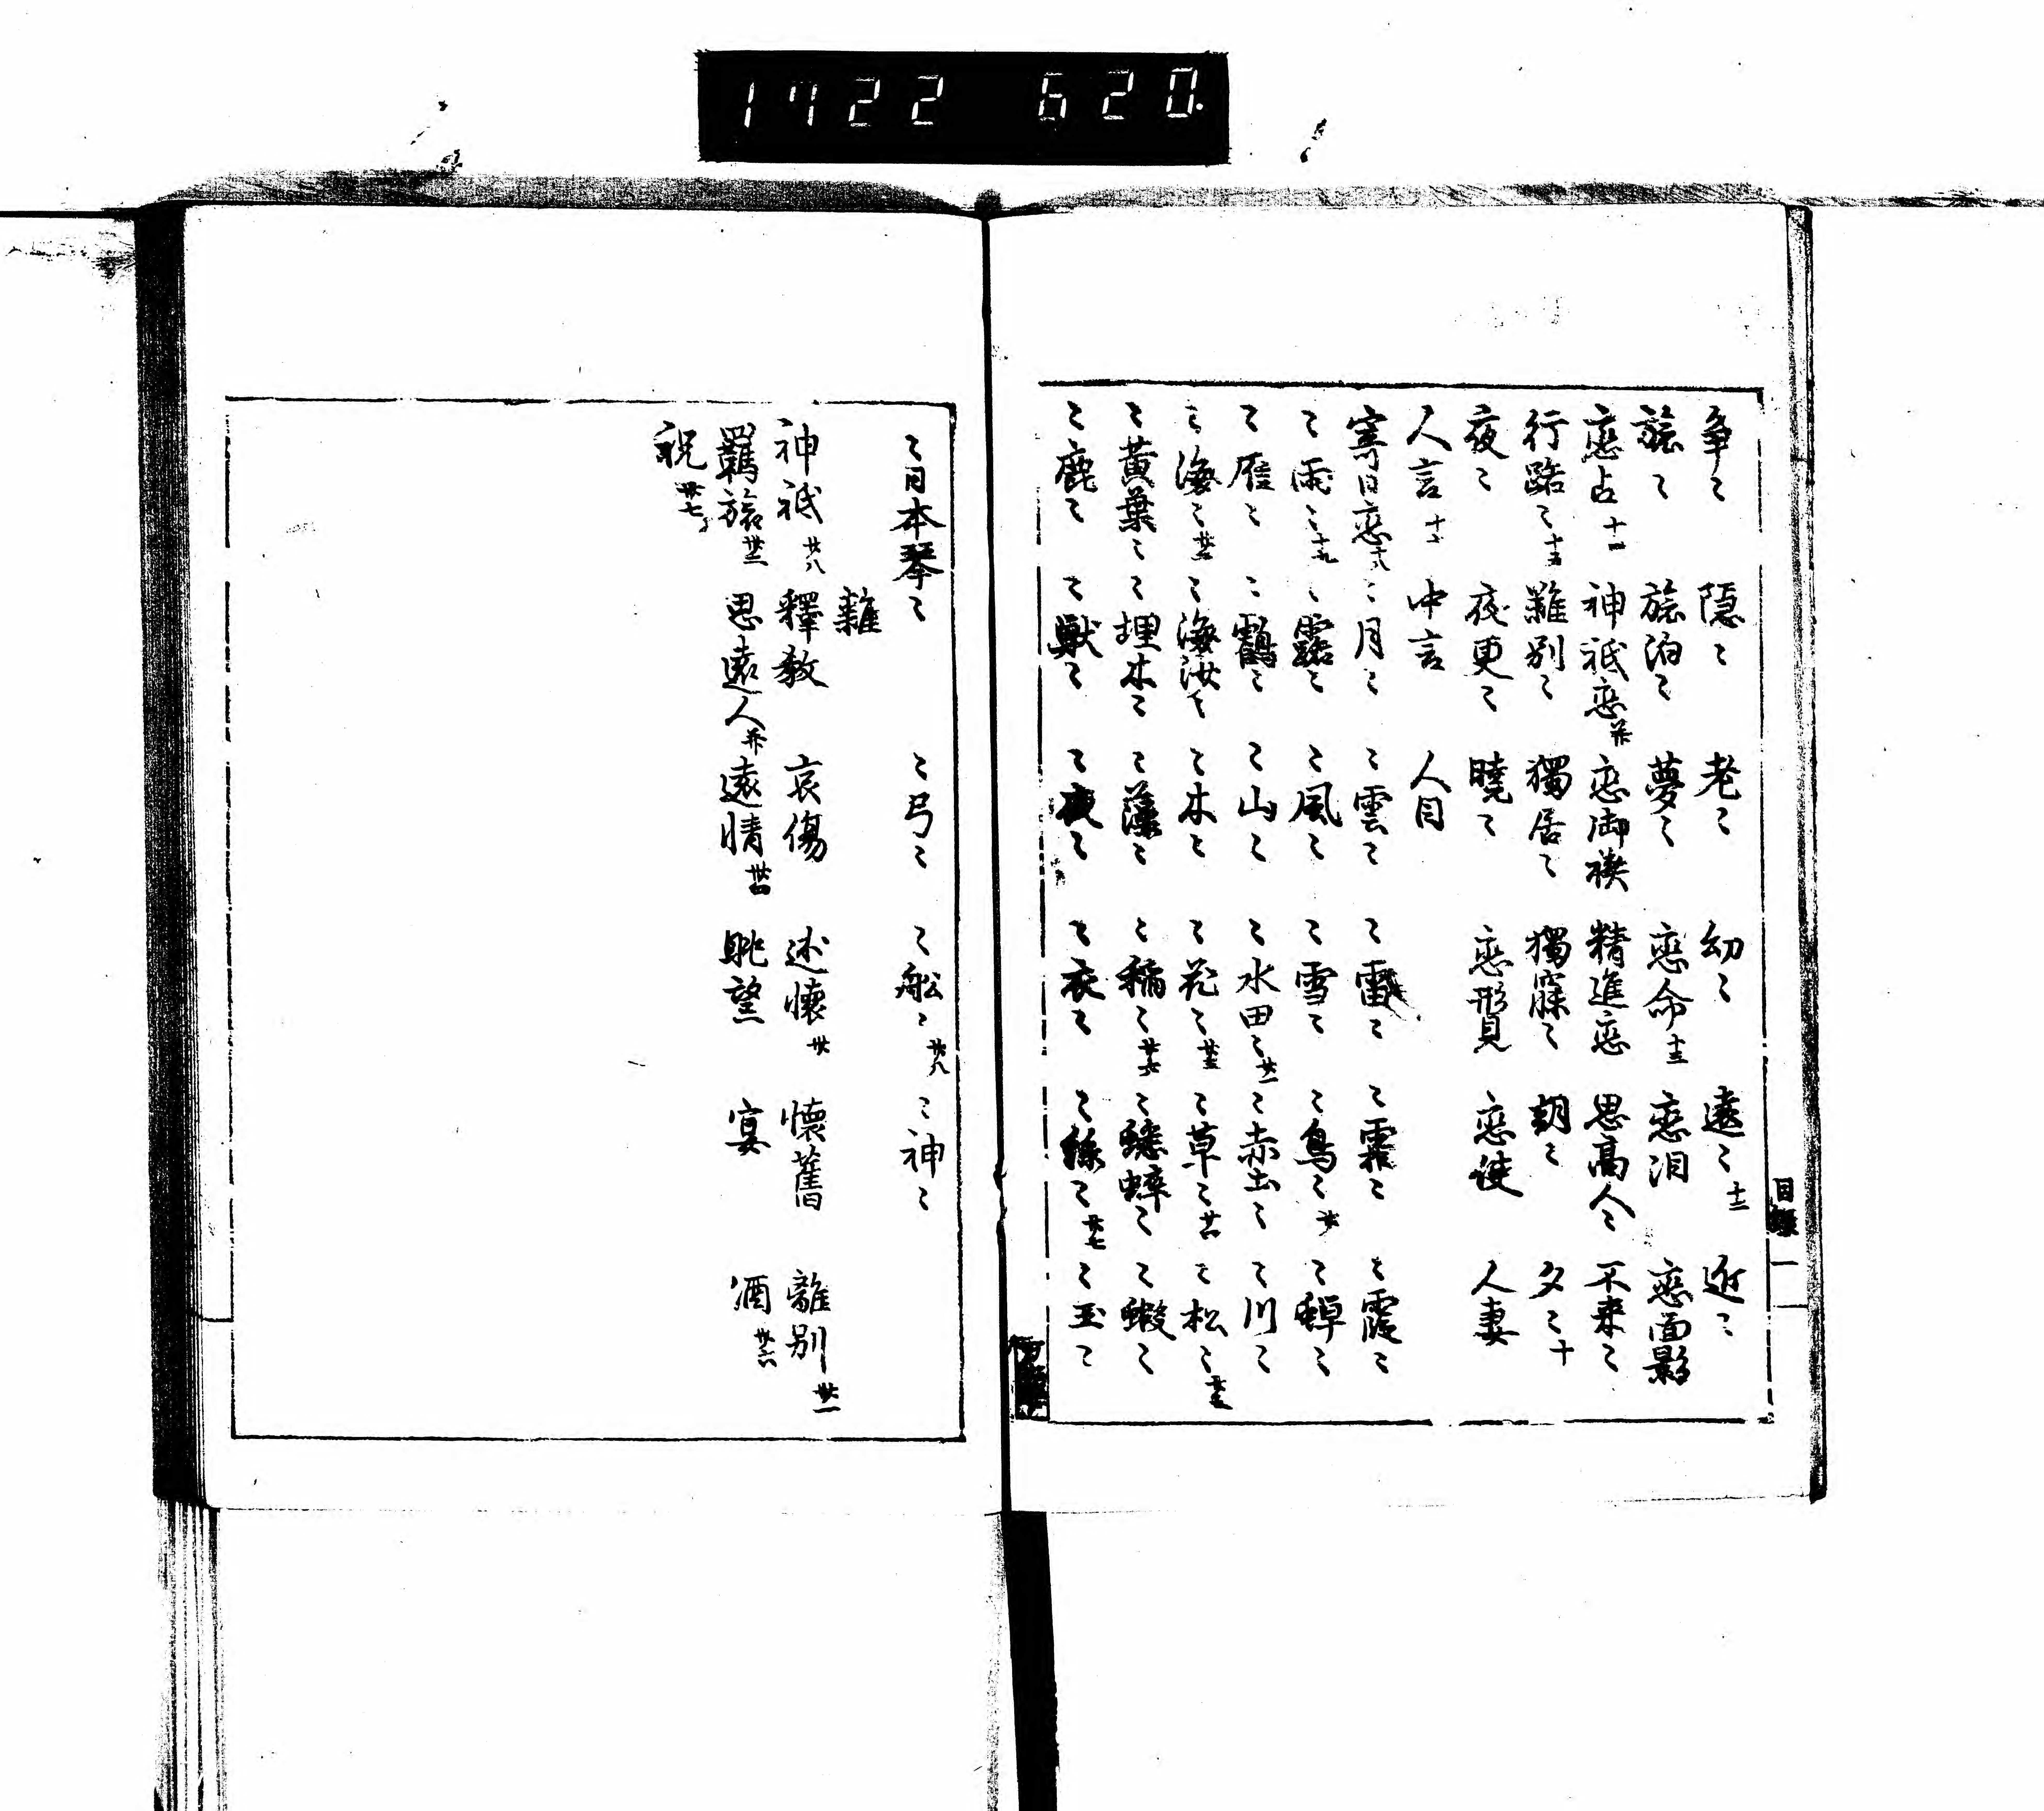 1722 620.
争〻 隠〻 老〻 幼〻 遠〻十二 近〻
旅〻 旅泊〻 夢〻 恋命十三 恋泪 恋面影
恋占十四 神祇恋并 恋御禊 精進恋 思高人〻 不来〻
行路〻十五 難別〻 獨居〻 獨寐〻 朝〻 夕〻十
夜〻 夜更〻 暁〻 恋形見 恋使 人妻
人言 中言 人目
寄日恋十八 〻月〻 〻雲〻 〻雷〻 〻霜〻 〻霞〻
〻雨〻十九 〻露〻 〻風〻 〻雪〻 〻鳥〻廿
〻雁〻 〻鶴〻 〻山〻 〻水田〻廿一 〻赤土〻 〻川〻
〻海〻 〻海渋〻 〻木〻 〻花〻 〻草〻 〻松〻
〻黄葉〻 〻埋木〻 〻藻〻 〻稲〻 〻蟋蟀〻 〻蝦〻
〻鹿〻 〻獣〻 〻夜〻 〻衣〻 〻絲〻廿七 〻玉〻
目録 一
〻日本琴〻 〻弓〻 〻船〻廿八 〻神〻
雜
神祇廿八 釋教 哀傷 述懐卅 懐舊 離別卅一
羈旅卅二 思遠人并遠情卅四 眺望 宴 酒卅六
祝卅七